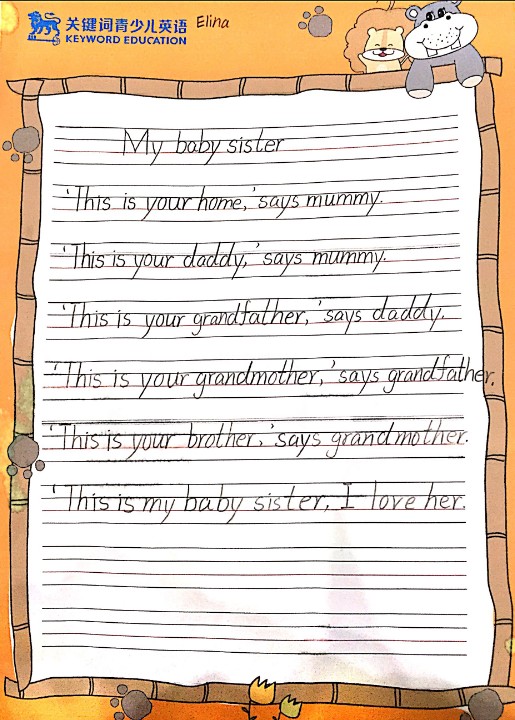 关键词青少儿英语 Elina
KEYWORD EDUCATION
My baby sister
'This is your home,' says mummy.
'This is your daddy,' says mummy.
'This is your grandfather,' says daddy.
'This is your grandmother,' says grandfather.
'This is your brother,' says grandmother.
'This is my baby sister, I love her.